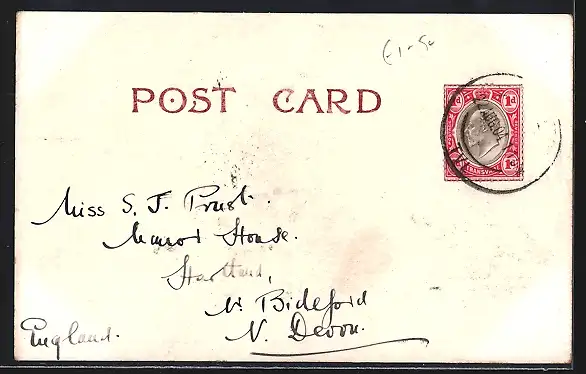 £1-50
POST CARD
1d 1d
1d
TRANSVAAL
Miss S. J. Prust.
Manor House.
Hartland,
Nr Bideford
N. Devon.
England.